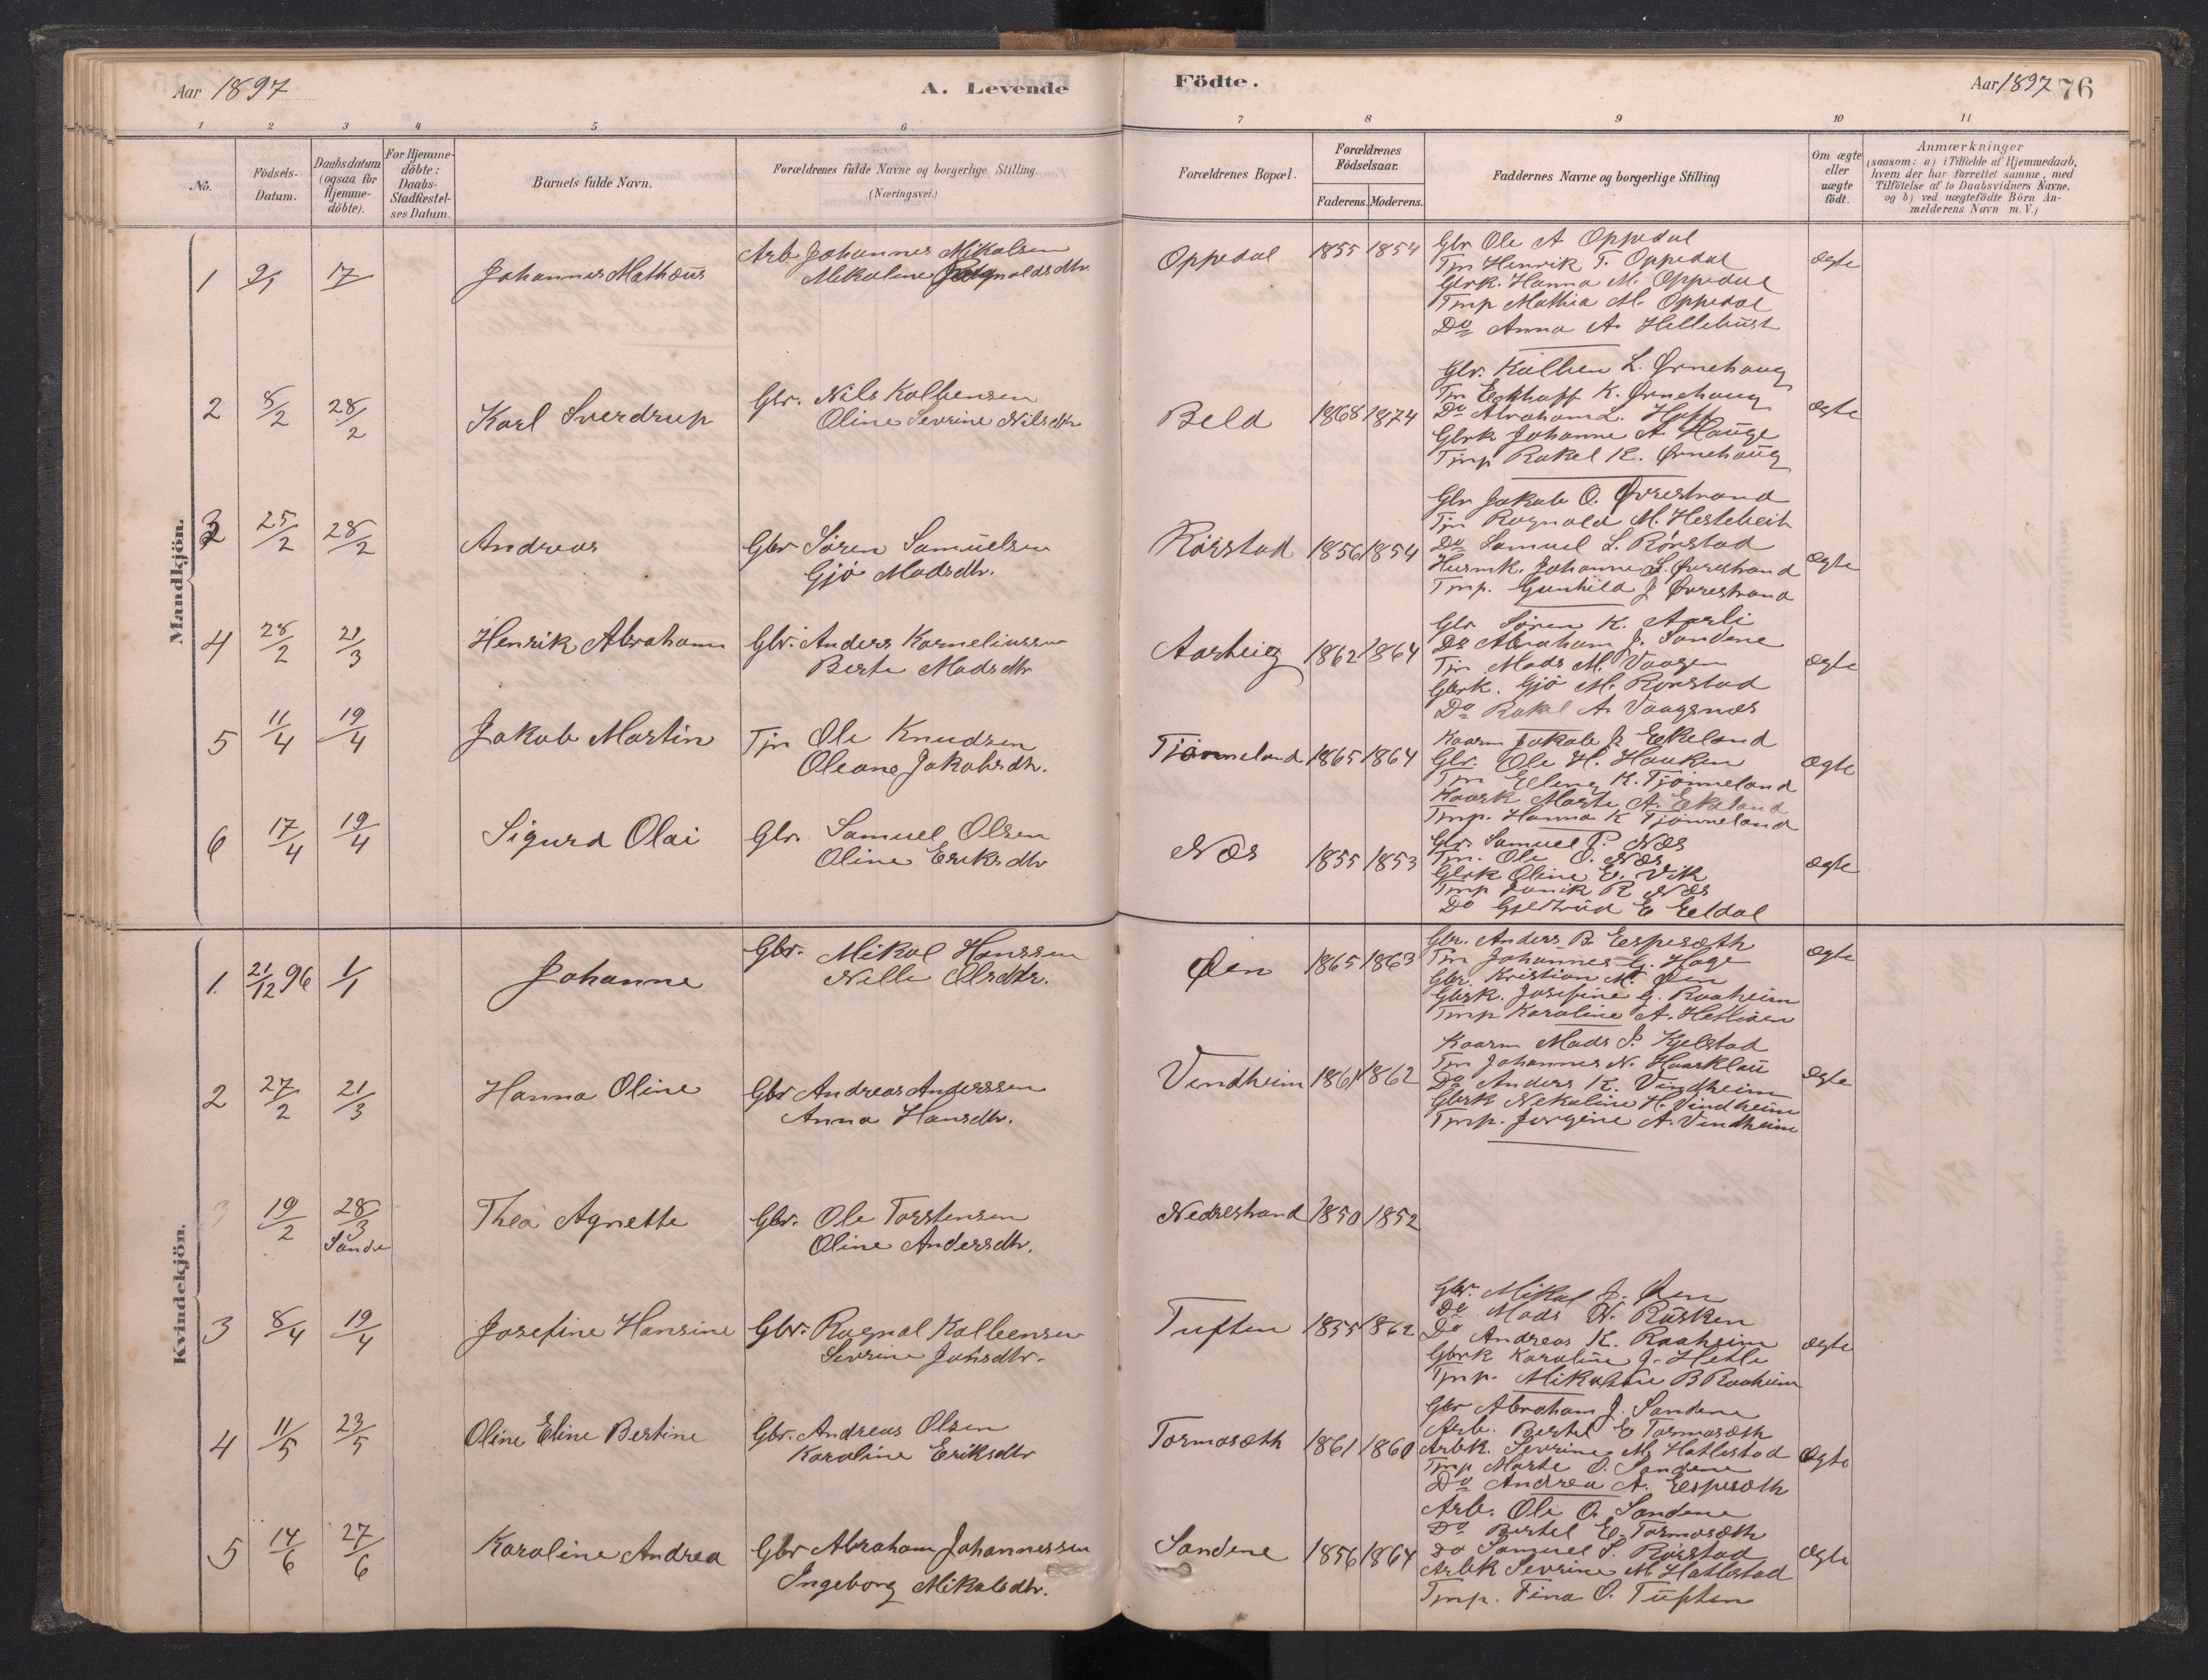 Aar 1897
A. Levende
Födte.
Aar 1897
76
1 2 3 4 5 6 7 8 9 10 11
No.
Födsels-
Datum.
Daabsdatum
(ogsaa for
Hjemme-
döbte).
For Hjemme-
döbte:
Daabs-
Stadfæstel-
ses Datum.
Barnets fulde Navn.
Forældrenes fulde Navne og borgerlige Stilling
(Næringsvei.)
Forældrenes Bopæl.
Forældrenes
Födselsaar.
Faderens. Moderens.
Faddernes Navne og borgerlige Stilling
Om ægte
eller
uægte
födt.
Anmærkninger
(saasom: a) i Tilfælde af Hjemmedaab,
hvem der har forrettet samme, med
Tilföielse af to Daabsvidners Navne,
og b) ved uægtefödte Börn An-
melderens Navn m. V.)
Mandkjön.
1 9/1 17/ Johannes Mathæus
Arb Johannes Mikalsen
Mikaline Ragnaldsdtr.
Oppedal 1855 1854
Gbr Ole A Oppedal
Tjn Henrik T. Oppedal
Gbrk. Hanna M. Oppedal
Tmp Mathia M. Oppedal
Do Anna A. Hellebust
ægte
2 8/2 28/2 Karl Sverdrup
Gbr. Nils Kolbensen
Oline Sevrine Nilsdtr
Beld 1868 1874
Gbr. Kolben L. Ørnehaug
Tjn Eckhoff K. Ørnehaug
Do Abraham L. Hoff
Gbrk Johanne A Hauge
Tjnp Rakel K. Ørnehaug
ægte
3 25/2 28/2 Andreas
Gbr Søren Samuelsen
Gjø Madsdtr.
Rørstad 1856 1854
Gbr Jakob O. Øvrestrand
Tjn Ragnald M. Hestebeit
Do Samuel S. Rørstad
Husmk. Johanne S. Øvrestrand
Tmp. Gunhild J Øvrestrand
ægte
4 28/2 21/3 Henrik Abraham
Gbr. Anders Korneliussen
Berte Madsdtr
Aarbeig 1862 1864
Gbr Søren K. Aarli
Do Abraham J. Sandene
Tjn Mads M. Vaagen
Gbrk. Gjø M. Rørstad
Do Rakel A. Vaagsnæs
ægte
5 11/4 19/4 Jakob Martin
Tjn Ole Knudsen
Oleane Jakobsdtr.
Tjønneland 1865 1864
Kaarm Jakob J. Eikeland
Gbr. Ole H. Hauken
Tjn Elleng K. Tjønneland
Kaark Marte A. Eikeland
Tmp. Hanna K Tjønneland
ægte
6 17/4 19/4 Sigurd Olai
Gbr. Samuel Olsen
Oline Eriksdtr
Næs 1855 1853
Gbr. Samuel P. Næs
Tjn. Ole O. Næs
Gbrk Oline E. Vik
Tmp Janik R Næs
Do Gjertrud E Eeldal
ægte
Kvindekjön.
1. 21/12 96 1/1 Johanne
Gbr. Mikal Hanssen
Nille Olsdtr.
Øen 1865 1863
Gbr. Anders B. Espesæth
Tjn Johannes G. Hage
Gbr. Kristian M. Øen
Gbrk. Josefine G. Raaheim
Tmp Karoline A. Hetleøen
ægte
2 27/2 21/3 Hanna Oline
Gbr Andreas Anderssen
Anna Hansdtr.
Vindheim 1861 1862
Kaarm Mads P. Kjelstad
Tjn Johannes N. Haarklau
Do Anders K. Vindheim
Gbrk Nekoline H. Vindheim
Tmp. Jorgine A. Vindheim
ægte
3 19/2 28/3 Thea Agnette
Sande
Gbr. Ole Torstensen
Oline Andersdtr.
Nedrestrand 1850 1852
3 8/4 19/4 Josefine Hansine
Gbr. Ragnal Kolbensen
Sevrine Johsdtr.
Tuften 1855 1862
Gbr. Mikal J. Øen
Do Mads N. Rusken
Do Andreas K. Raaheim
Gbrk Karoline J. Hetle
Tmp. Mikaline B Raaheim
ægte
4 11/5 23/5 Oline Eline Bertine
Gbr. Andreas Olsen
Karoline Eriksdtr
Tormosæth 1861 1860
Gbr Abraham J. Sandene
Arb. Bertel E Tormosæth
Arbk. Sevrine M. Hatlestad
Tmp Marte O. Sandene
Do Andrea A. Espesæth
ægte
5 14/6 27/6 Karoline Andrea
Gbr Abraham Johannessen
Ingeborg Mikalsdtr.
Sandene 1856 1864
Arb. Ole O. Sandene
Do Bertel E. Tormosæth
Do Samuel S. Rørstad
Arbk Sevrine M. Hatlestad
Tmp. Fina O. Tuften
ægte